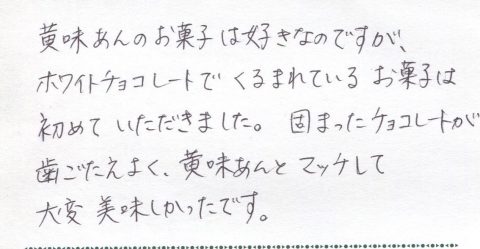 黄味あんのお菓子は好きなのですが、
ホワイトチョコレートでくるまれているお菓子は
初めていただきました。固まったチョコレートが
歯ごたえよく、黄味あんとマッチして
大変美味しかったです。